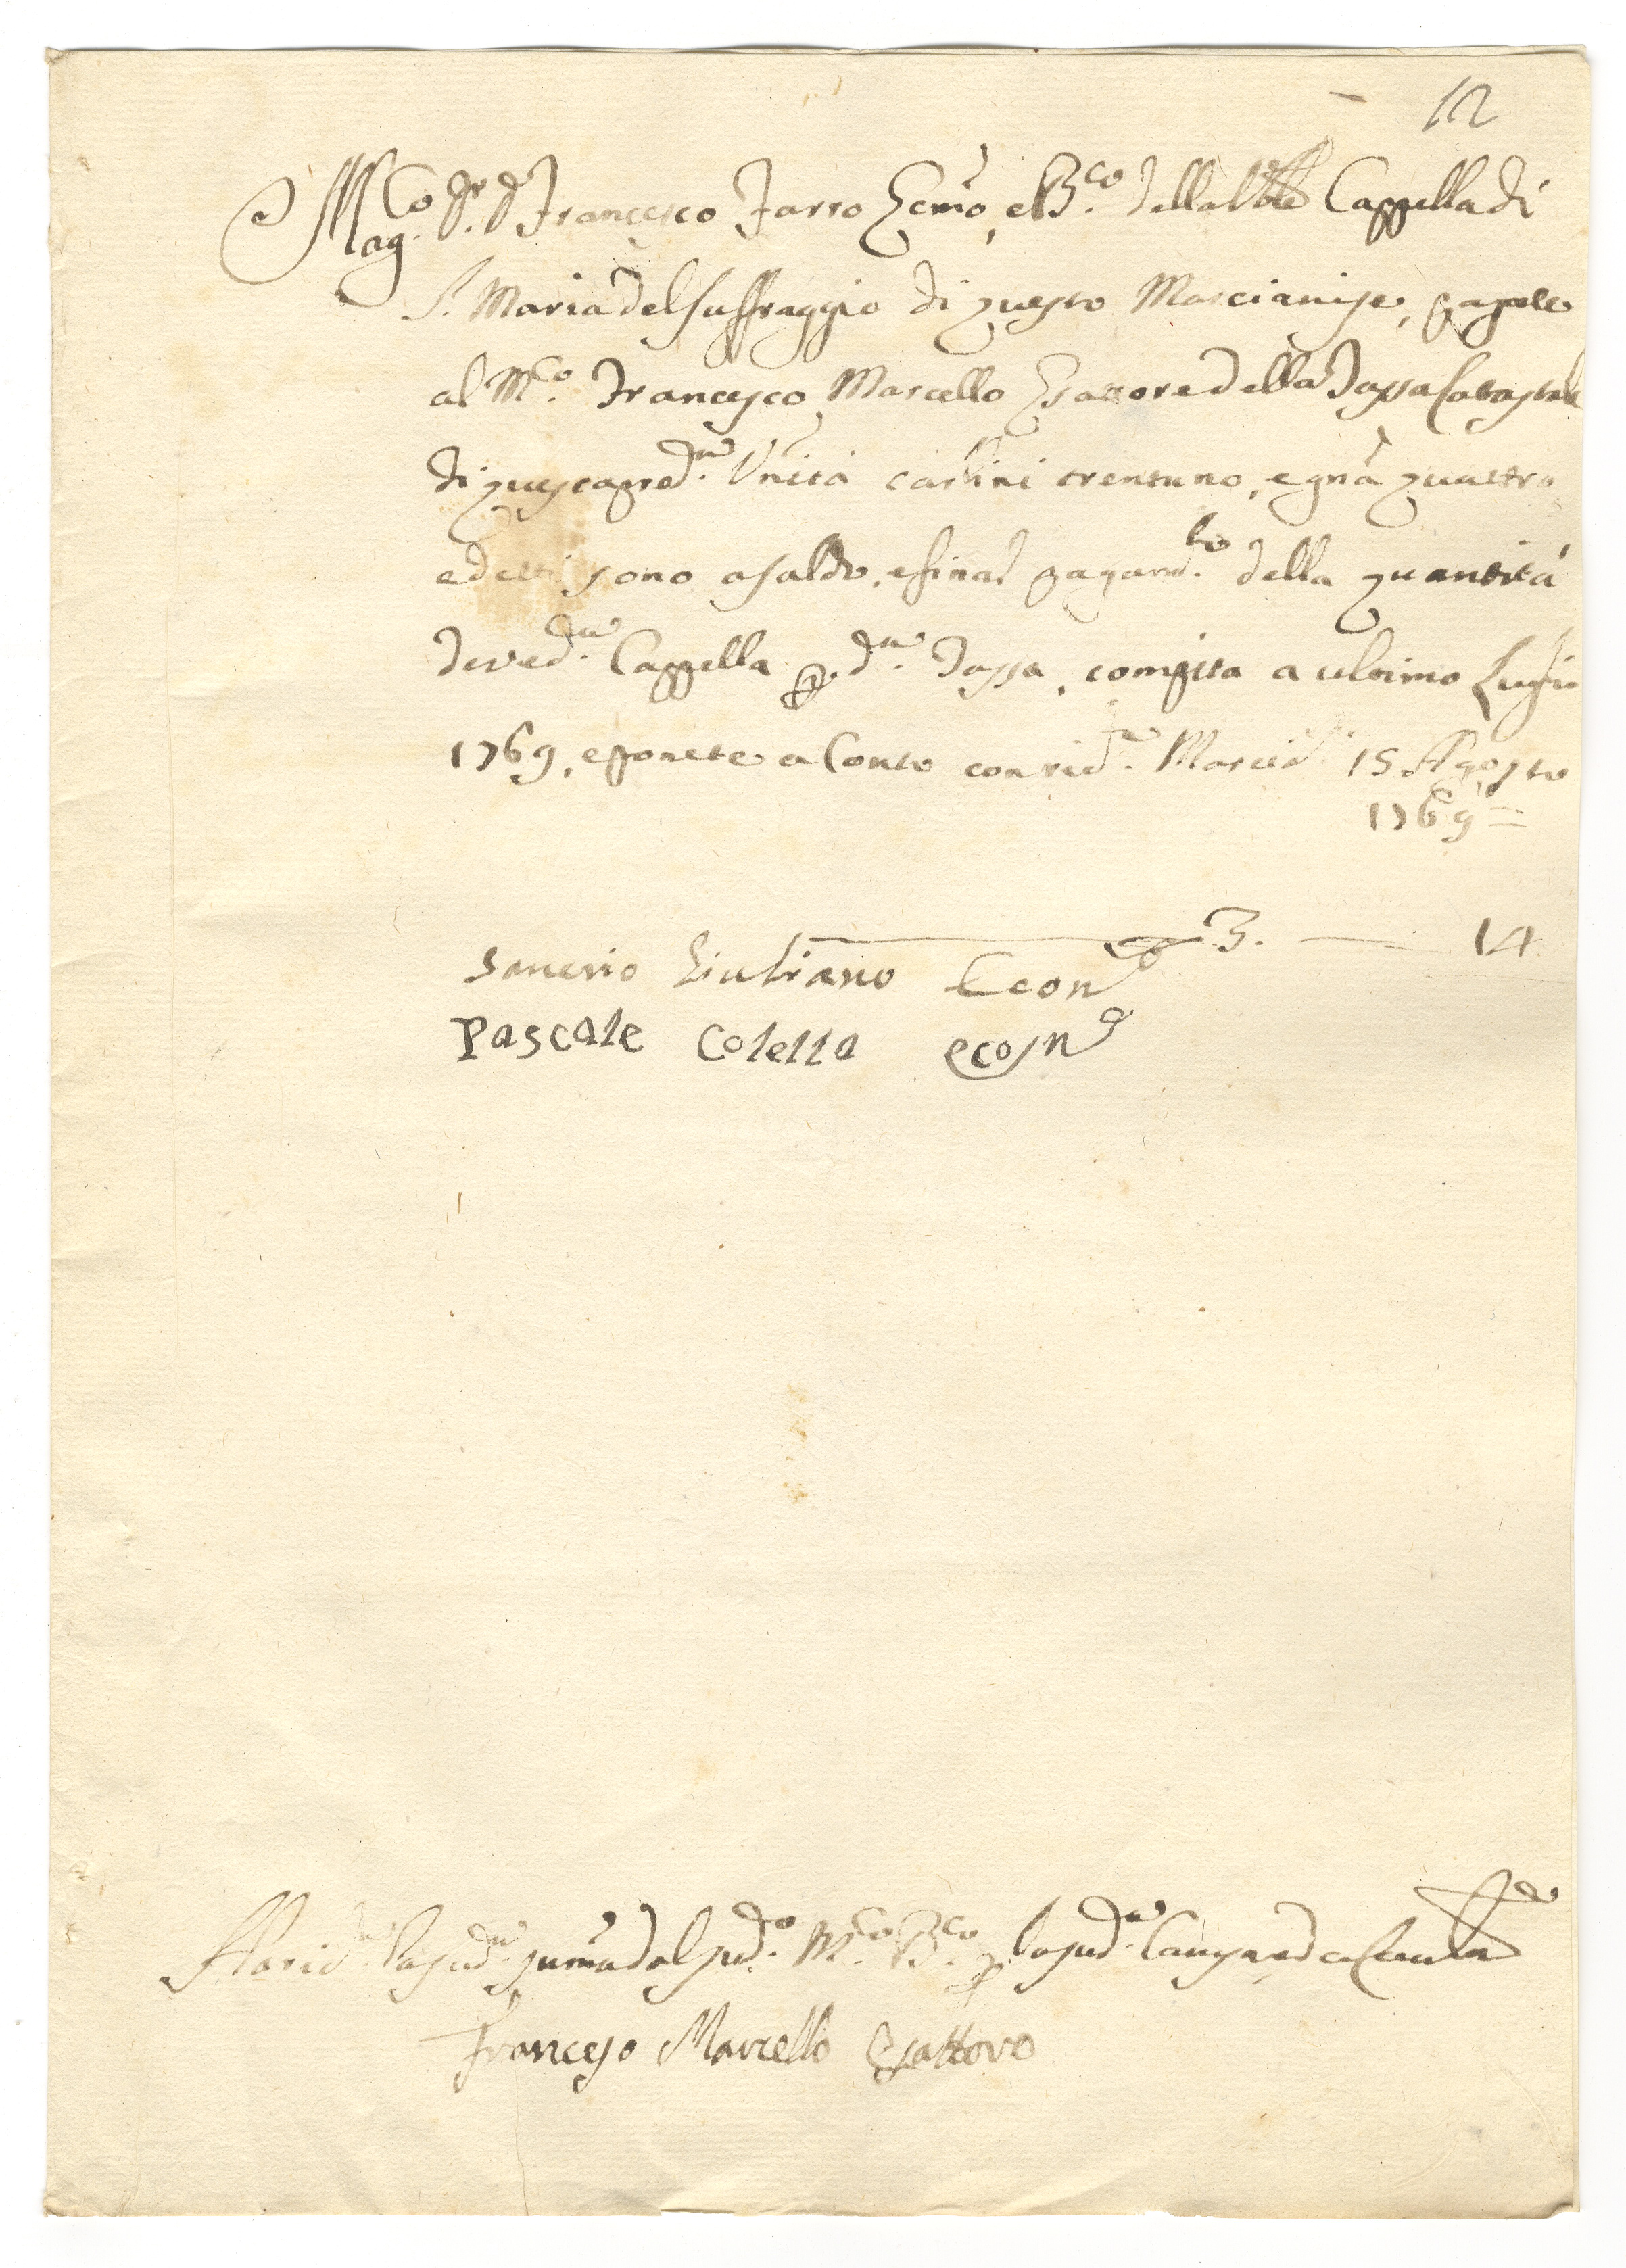 12
Mag.co Dr. D. Francesco Farro Ecmo, e B.co della Vble Cappella di
S. Maria del Suffraggio di questo Marcianise, pagate
al M.co Francesco Marcello Esattore della Tassa Catastale
di questa pred.a Unità carlini trentuno, e gna quattro
e detti sono a saldo, e final pagam.to della quantità
deved.a Cappella p d.a Tassa, compita a ultimo Luglio
1769, e ponete a Conto con ric.a Marcia.e 15 Agosto
1769 =
3. — 14
Saverio Giuliano Econ.o
Pascale Colella econ.o
la sud.a suma dal sud.o M.co B.co p la sud.a Causa, ed in
Francesco Marcello Esattore